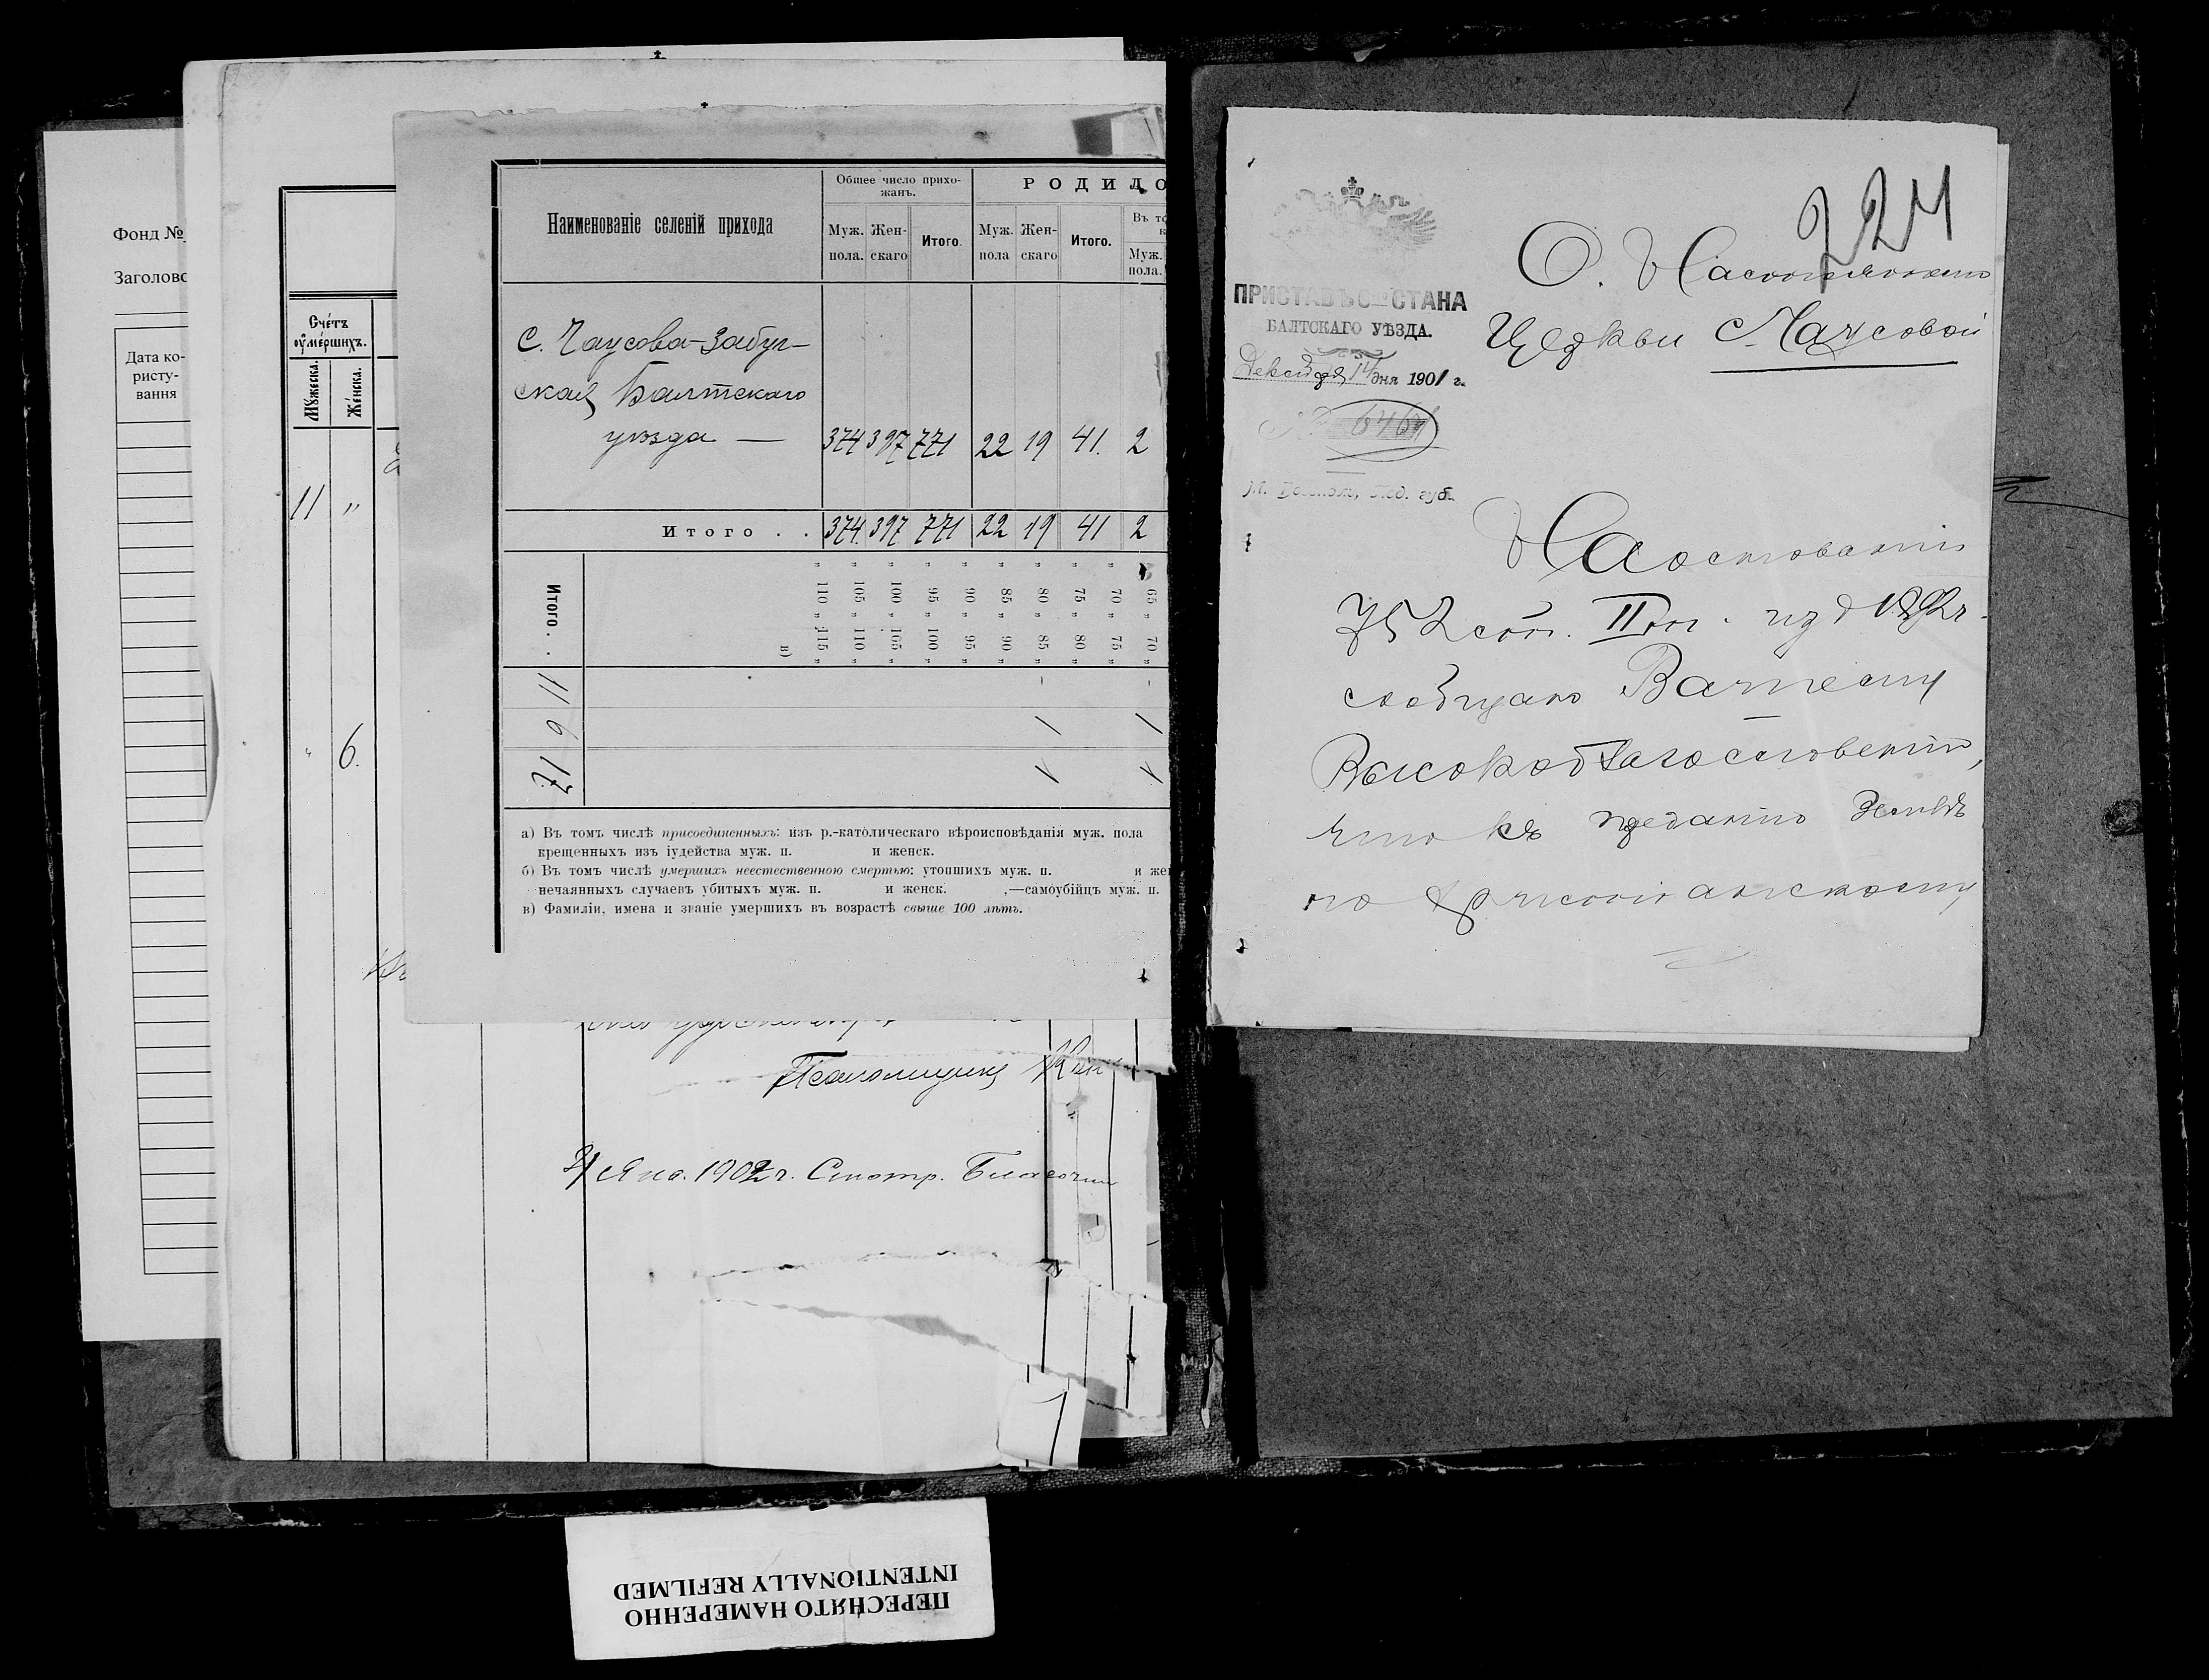 Фонд №
Заголово
Дата ко-
ристу-
вання
Счéтъ
оумéршихъ.
Мꙋжеска.
Жéнска.
11 "
" 6.
Наименованіе селеній прихода
Общее число прихо-
жанъ.
Муж.
пола.
Жен-
скаго
Итого.
РОДИЛО
Муж.
пола
Жен-
скаго
Итого.
Въ то
Муж.
пола.
с. Чаусова-Забуг-
ская Балтскаго
уѣзда — 374 397 771 22 19 41. 2
Итого . . 374. 397 771 22 19 41 2
Итого . .
" 110 " 115 "
" 105 " 110 "
" 100 " 105 "
" 95 " 100 "
" 90 " 95 "
" 85 " 90 "
" 80 " 85 "
" 75 " 80 "
" 70 " 75 "
65 " 70 "
в)
11
6 1 1
17. 1 1
а) Въ томъ числѣ присоединенныхъ: изъ р.-католическаго вѣроисповѣданія муж. пола
крещенныхъ изъ іудейства муж. п. и женск.
б) Въ томъ числѣ умершихъ неестественною смертью: утопшихъ муж. п. и же
нечаянныхъ случаевъ убитыхъ муж. п. и женск. ,—самоубійцъ муж. п.
в) Фамиліи, имена и званіе умершихъ въ возрастѣ свыше 100 лѣтъ.
Псаломщикъ
Янв. 1902 г. Смотр. Благочин
ПЕРЕСНЯТО НАМЕРЕННО
INTENTIONALLY REFILMED
224
ПРИСТАВЪ СТАНА
БАЛТСКАГО УѢЗДА.
Декабря 14 дня 1901 г.
№ 6461
м. Под. губ.
О. Настоятелю
Церкви с. Чаусовой
На основаніи
752 ст. II т. изд 1892 г.
сообщаю Вашему
Высокоблагословенію,
что къ преданію землѣ
по христіанскому